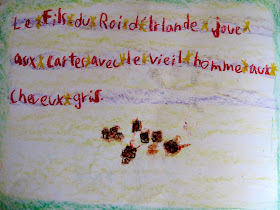 Le Fils du Roi d'Irlande joue
aux cartes avec le vieil homme aux
cheveux gris.